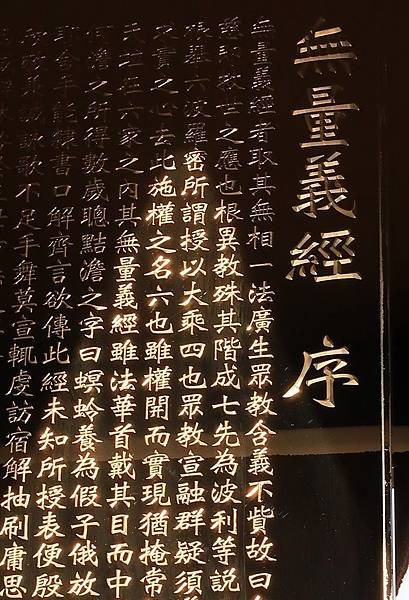 無量義經 序
無量義經者取其無相一法廣生眾教含義不貲故曰
慈即救世之應也根異教殊其階成七先為波利等說
根舉六波羅密所謂授以大乘四也眾教宣融群疑須
求實之心去此施權之名六也雖權開而實現猶掩常
氏並在六家之內其無量義經雖法華首戴其目而中
何澹之所得數歲聰黠澹之字曰螟蛉養為假子俄放
耶舍手能隸書口解齊言欲傳此經未知所授表便殷
詠歌不足手舞莫宣輒虔訪宿解抽刷庸思